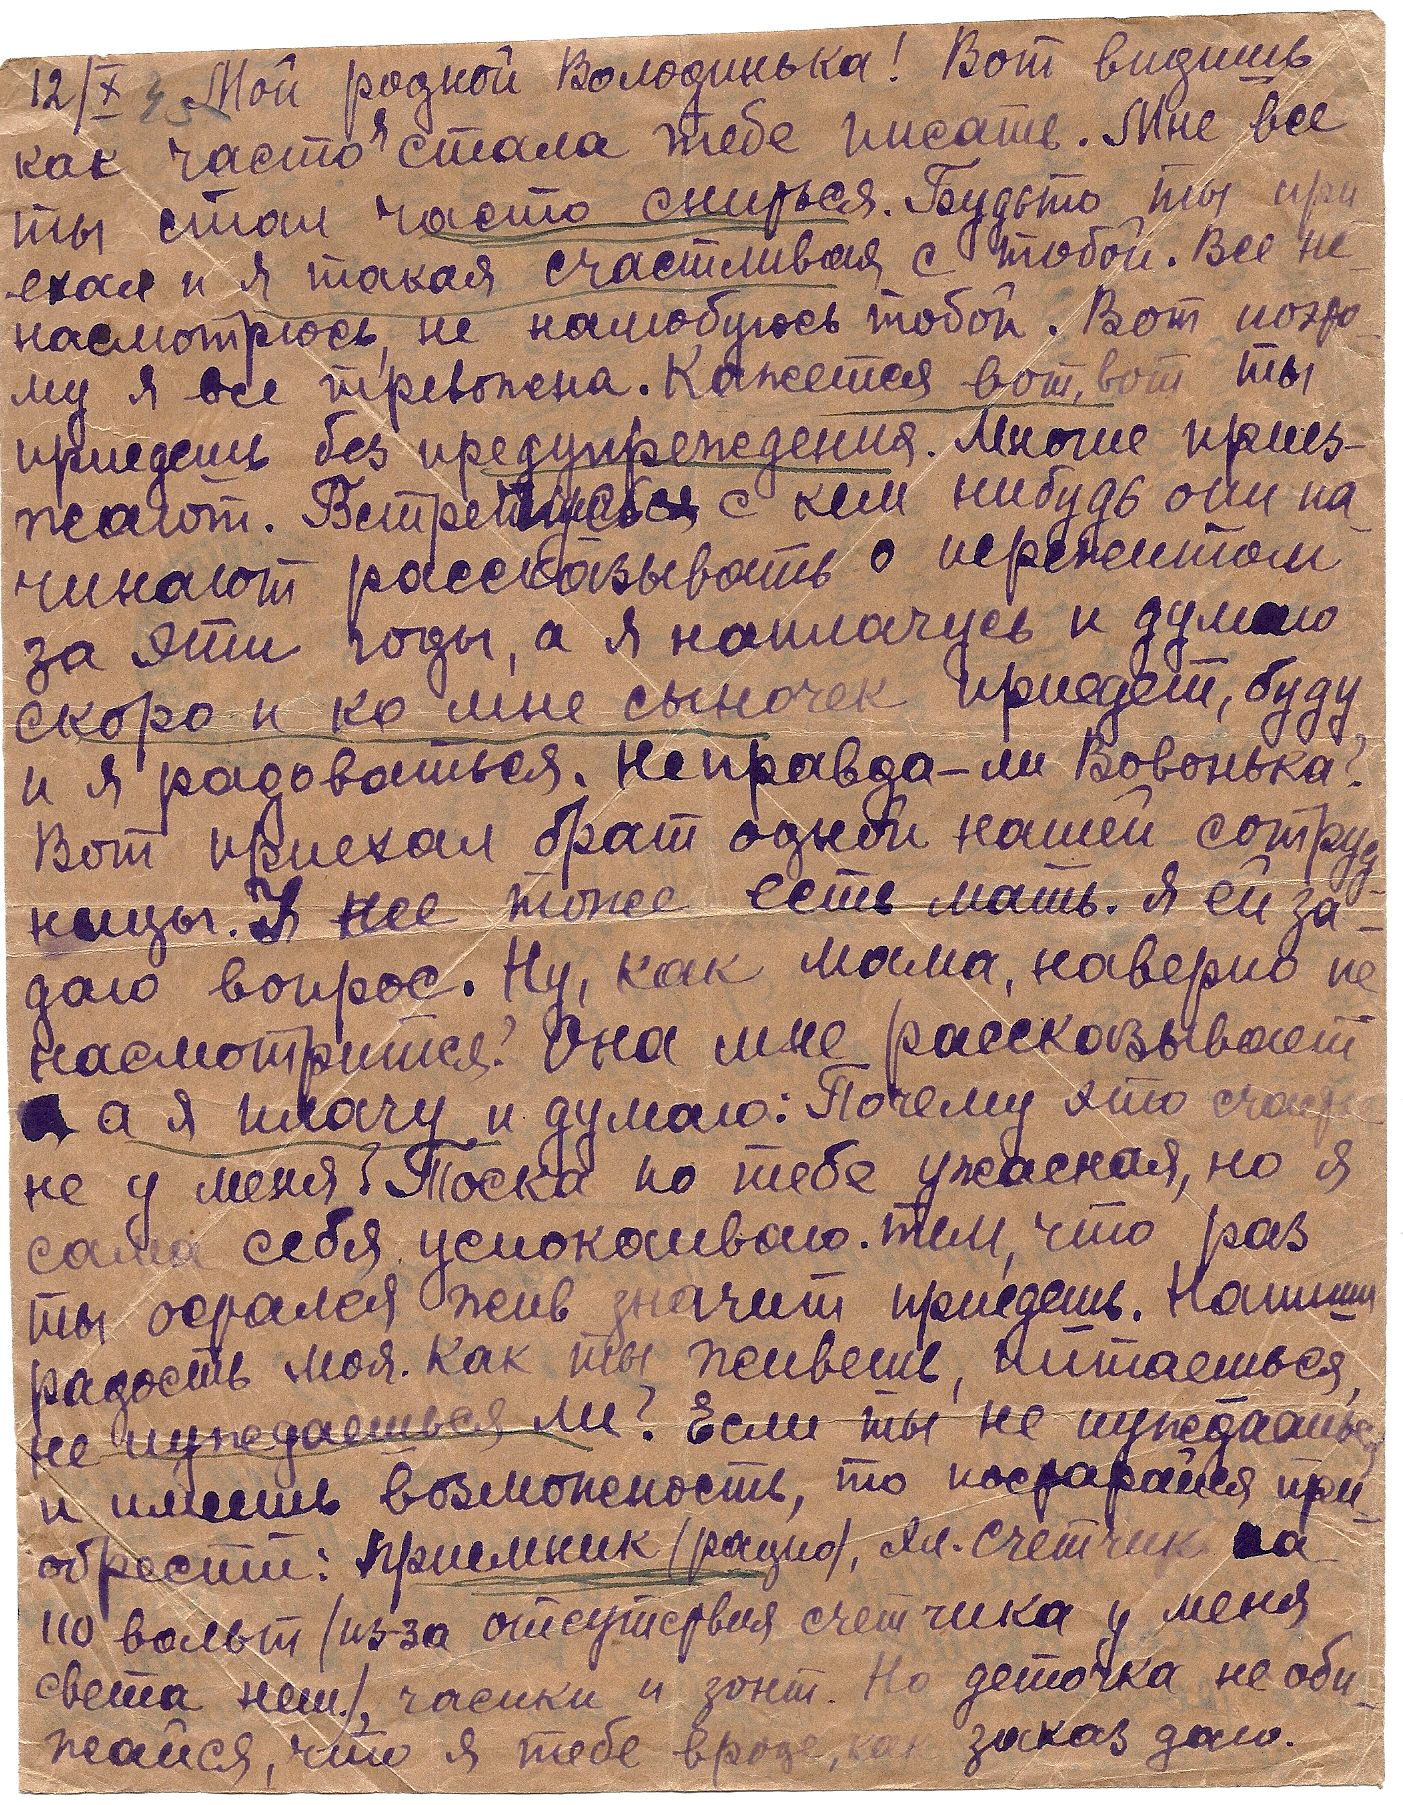 12/X 45 Мой родной Володинька! Вот видишь
как часто я стала тебе писать. Мне все
ты стал часто сниться. Будьто ты при
ехал и я такая счастливая с тобой. Все не
насмотрюсь, не налюбуюсь тобой. Вот поэто-
му я все тревожена. Кажется вот, вот ты
приедешь без предупреждения. Многие приез-
жают. Встретишься с кем нибудь они на
чинают рассказывать о пережитом
за эти годы, а я наплачусь и думаю
скоро и ко мне сыночек приедет, буду
и я радоваться. Неправда-ли Вовонька?
Вот приехал брат одной нашей сотруд-
ницы. У нее тоже есть мать. Я ей за-
даю вопрос. Ну, как мама, наверно не
насмотрится? Она мне рассказывает
а я плачу и думаю: Почему это счастье
не у меня? Тоска по тебе ужасная, но я
сама себя успокаиваю. тем, что раз
ты остался жив значит приедешь. Напиши
радость моя. Как ты живешь, питаешься,
не нуждаешься ли? Если ты не нуждаешься
и имеешь возможность, то постарайся при-
обрести: приемник /радио/, эл. счетчик на
110 вольт /из-за отсутствия счетчика у меня
света нет/, часики и зонт. Но деточка не оби-
жайся, что я тебе вроде, как заказ даю.